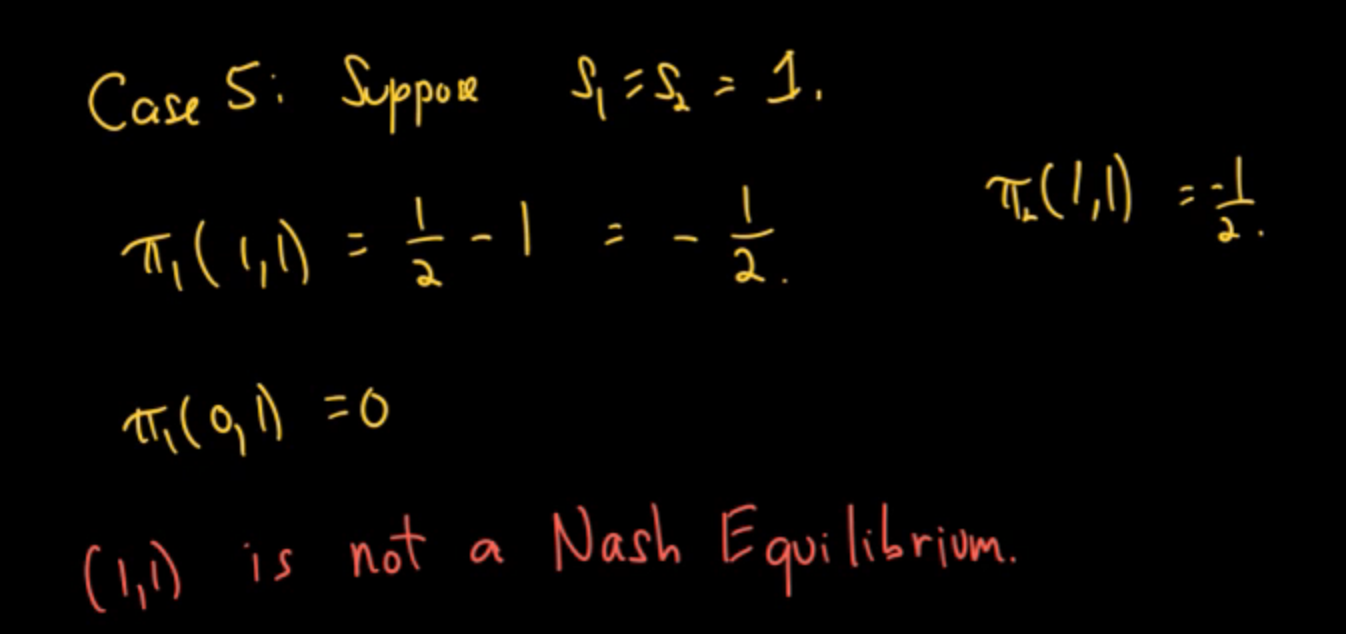 Case 5: Suppose S₁ = S₂ = 1.
π₁(1,1) = 1/2 - 1 = - 1/2.
π₂(1,1) = -1/2.
π₁(0,1) = 0
(1,1) is not a Nash Equilibrium.